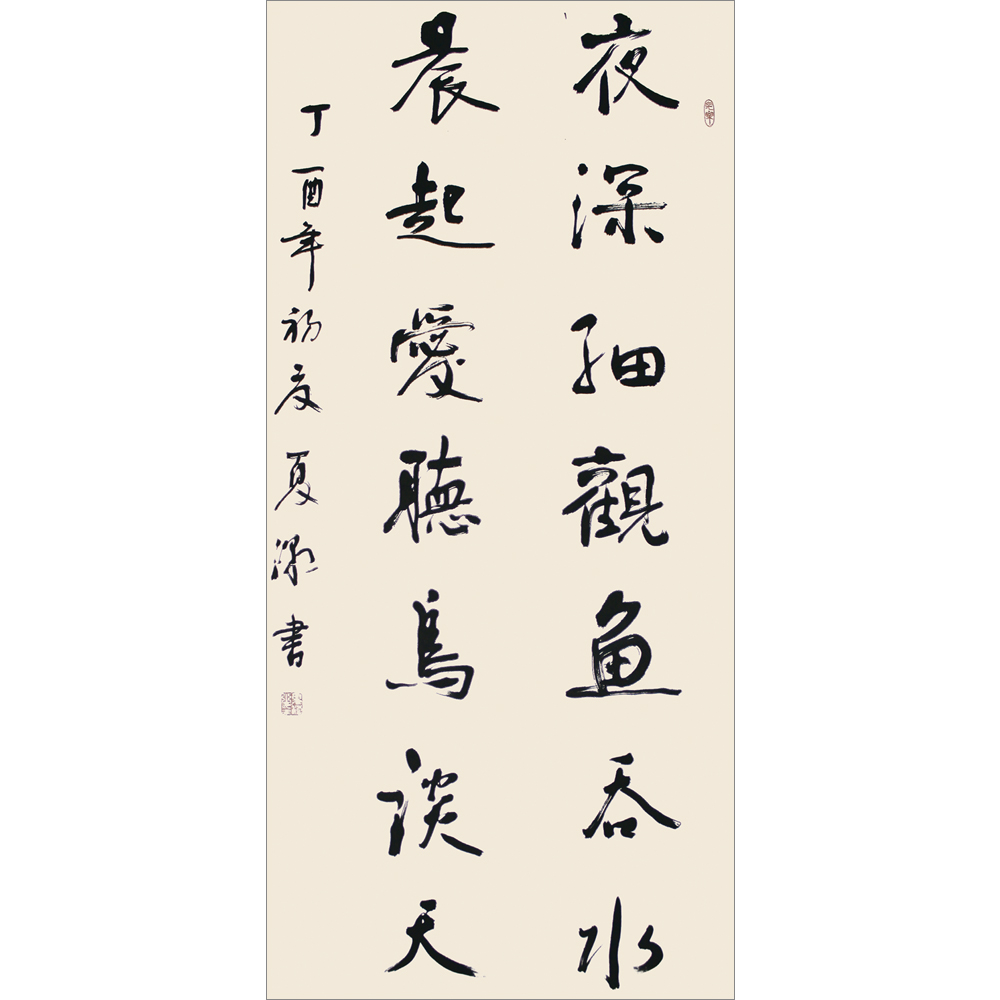 夜深细觀鱼吞水
晨起愛聽鳥談天
丁酉年初夏夏淼書